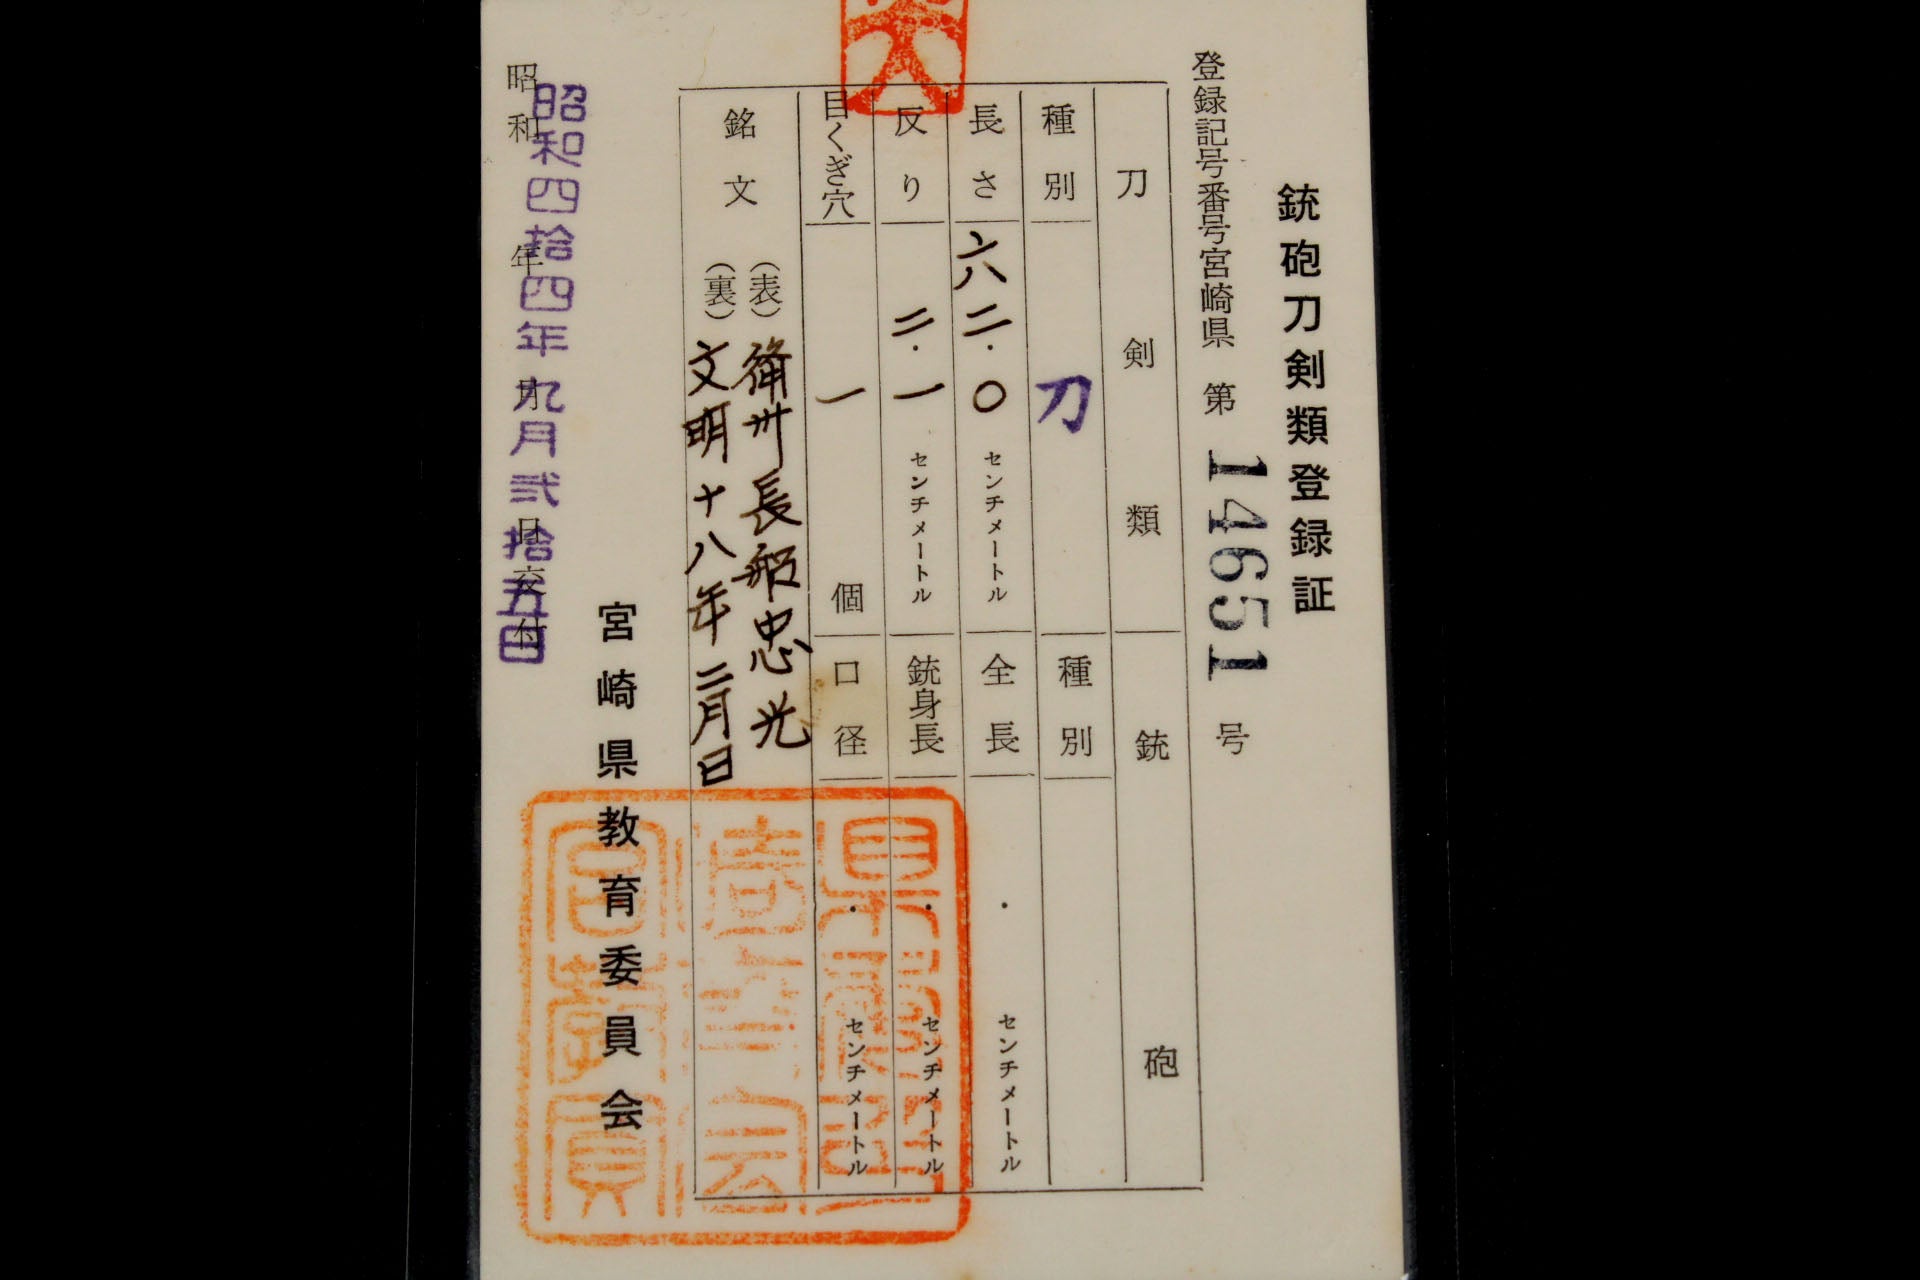 銃砲刀剣類登録証
登録記号番号宮崎県 第 14651 号
刀剣類 銃砲
種別 刀 種別
長さ 六二.〇 センチメートル 全長 . センチメートル
反り 二.一 センチメートル 銃身長 . センチメートル
目くぎ穴 一 個 口径 . センチメートル
銘文 (表) 俻州長船忠光
(裏) 文明十八年二月日
宮崎県教育委員会
昭和 年 月 日交付
昭和四拾四年九月弐拾五日